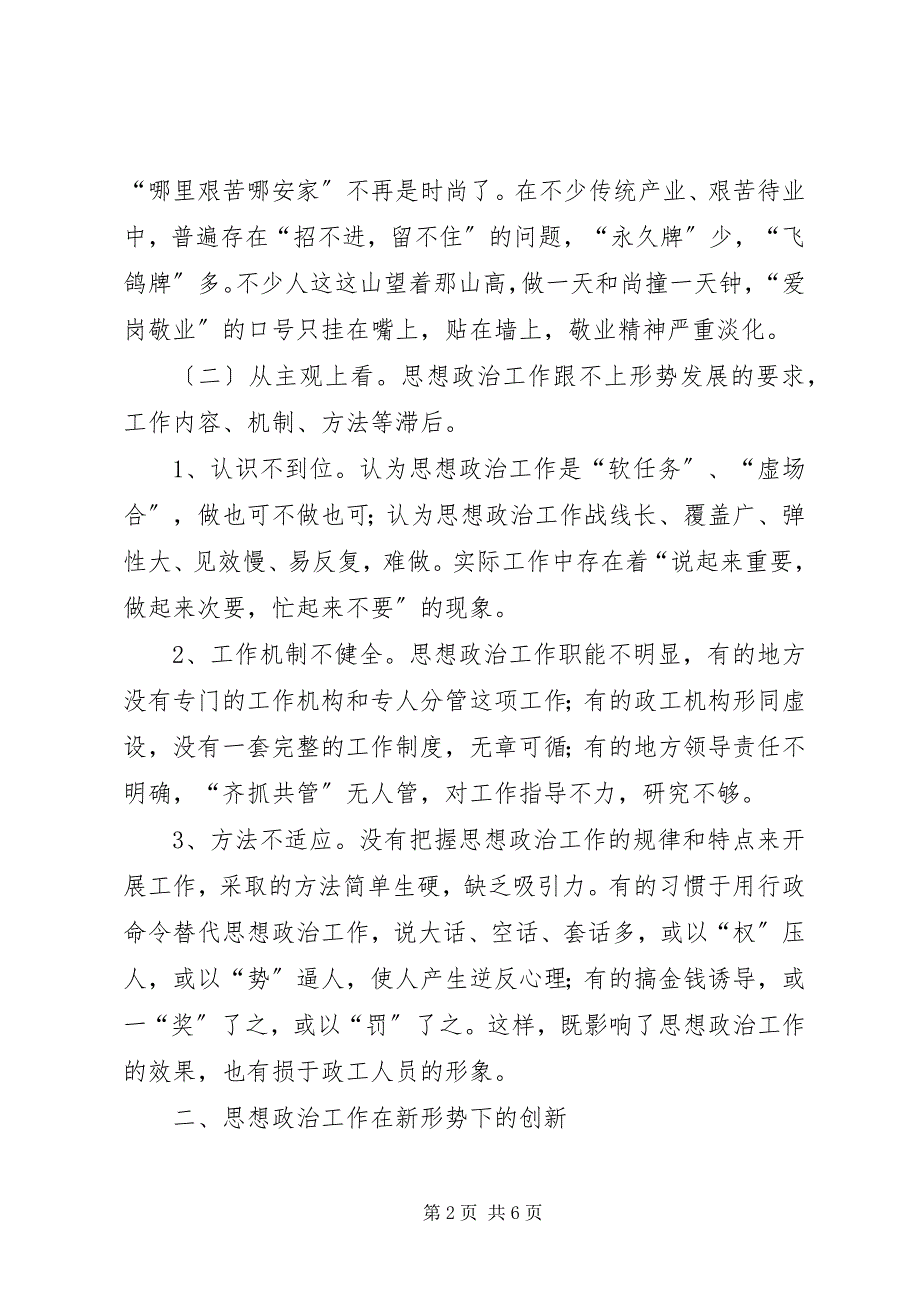 “哪里艰苦哪安家〞不再是时尚了。在不少传统产业、艰苦待业
中，普遍存在“招不进，留不住〞的问题，“永久牌〞少，“飞
鸽牌〞多。不少人这这山望着那山高，做一天和尚撞一天钟，“爱
岗敬业〞的口号只挂在嘴上，贴在墙上，敬业精神严重淡化。
〔二〕从主观上看。思想政治工作跟不上形势发展的要求，
工作内容、机制、方法等滞后。
1、认识不到位。认为思想政治工作是“软任务〞、“虚场
合〞，做也可不做也可；认为思想政治工作战线长、覆盖广、弹
性大、见效慢、易反复，难做。实际工作中存在着“说起来重要，
做起来次要，忙起来不要〞的现象。
2、工作机制不健全。思想政治工作职能不明显，有的地方
没有专门的工作机构和专人分管这项工作；有的政工机构形同虚
设，没有一套完整的工作制度，无章可循；有的地方领导责任不
明确，“齐抓共管〞无人管，对工作指导不力，研究不够。
3、方法不适应。没有把握思想政治工作的规律和特点来开
展工作，采取的方法简单生硬，缺乏吸引力。有的习惯于用行政
命令替代思想政治工作，说大话、空话、套话多，或以“权〞压
人，或以“势〞逼人，使人产生逆反心理；有的搞金钱诱导，或
一“奖〞了之，或以“罚〞了之。这样，既影响了思想政治工作
的效果，也有损于政工人员的形象。
二、思想政治工作在新形势下的创新
第 2 页 共 6 页